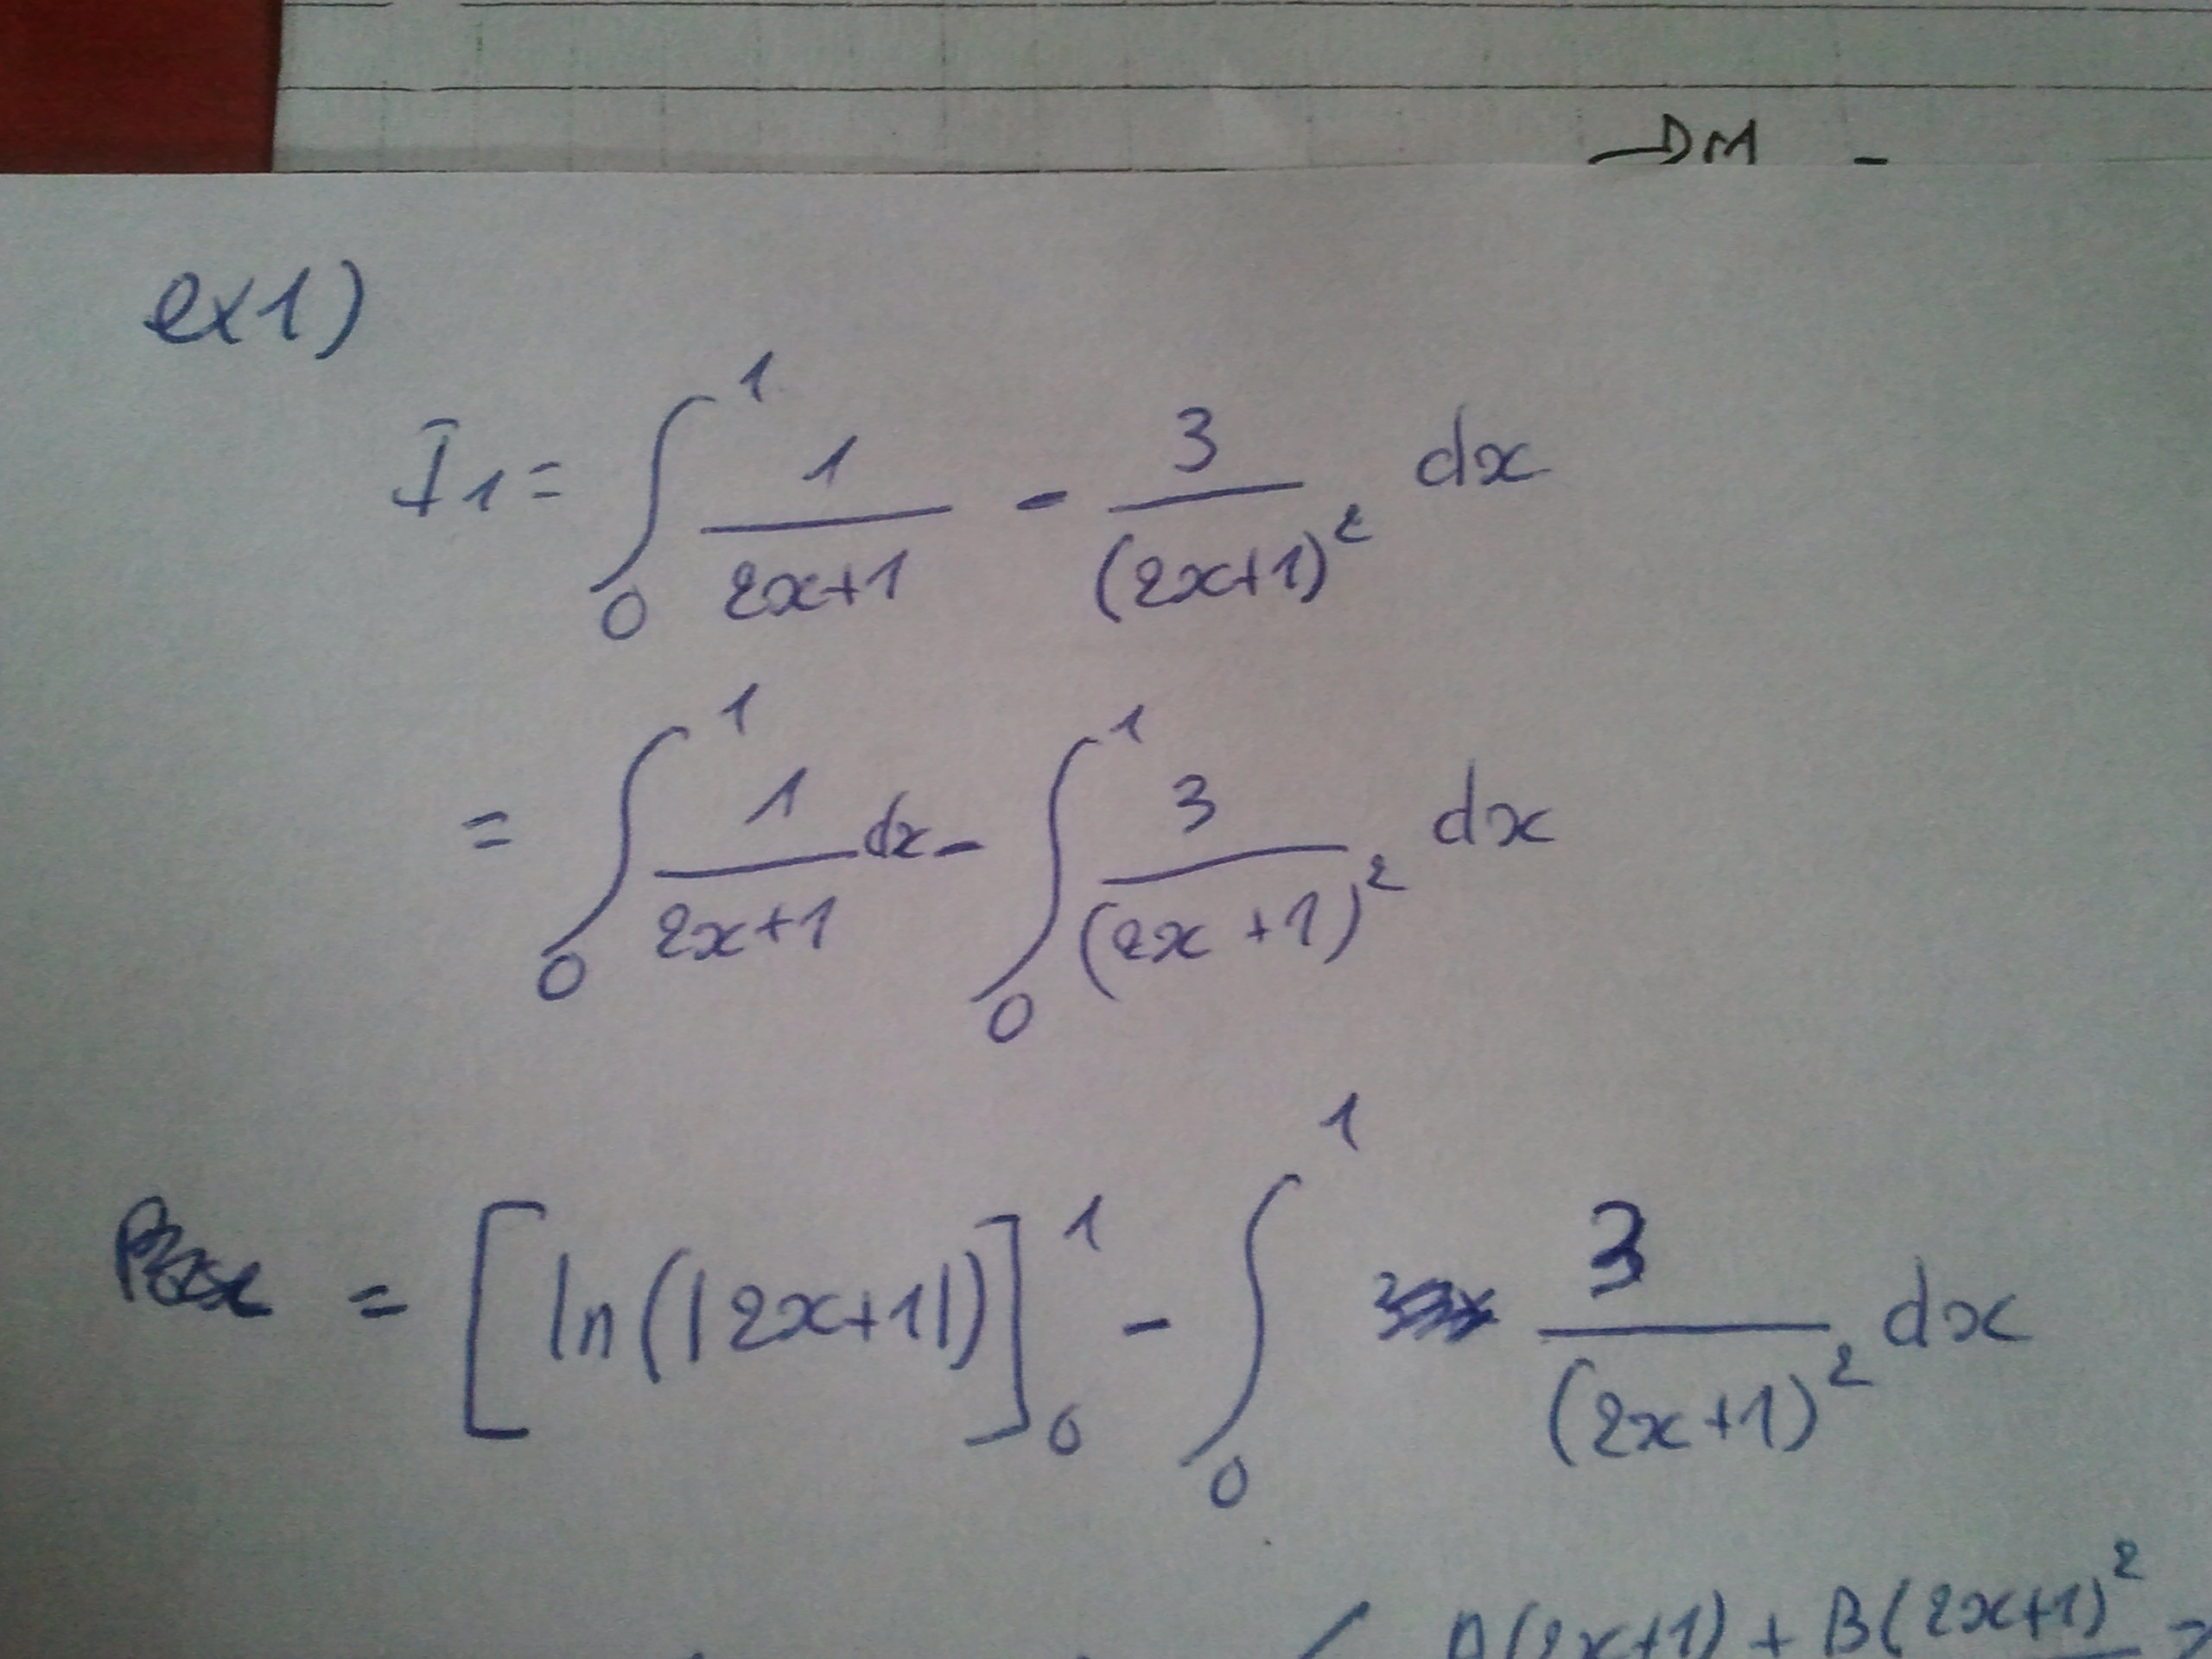 DM -
ex1)
I1 = ∫₀¹ 1/(2x+1) - 3/(2x+1)² dx
= ∫₀¹ 1/(2x+1) dx - ∫₀¹ 3/(2x+1)² dx
= [ln(|2x+1|)]₀¹ - ∫₀¹ 3/(2x+1)² dx
A(2x+1) + B(2x+1)²